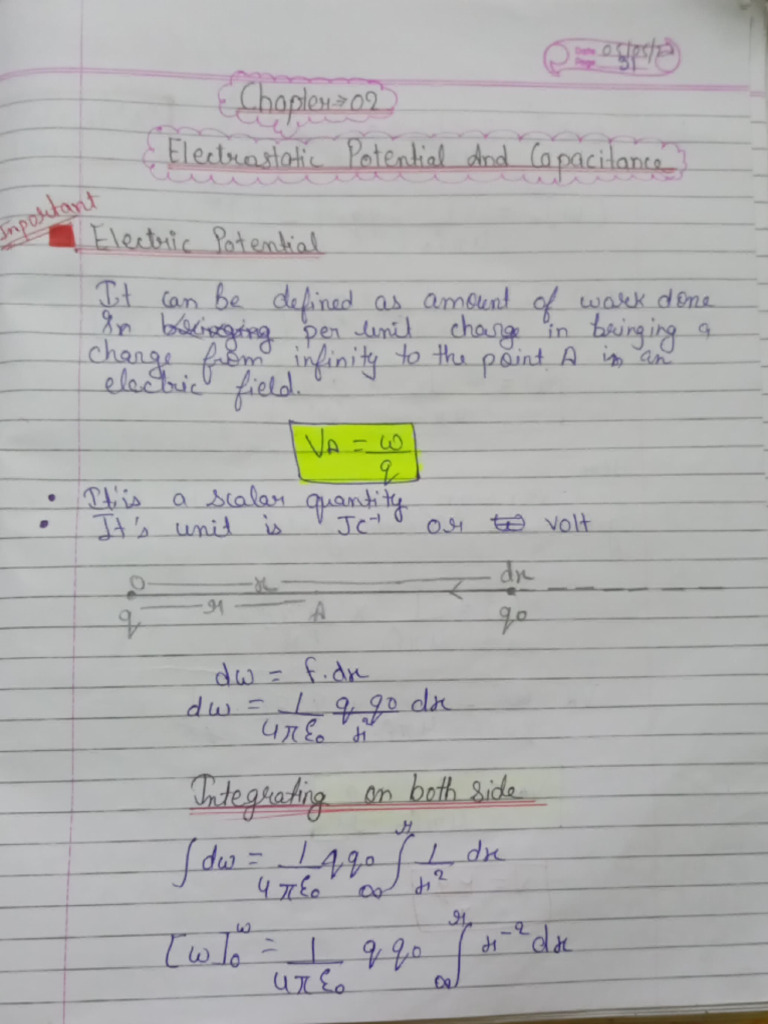 Date 05/05/23
Page 31
Chapter→02
Electrostatic Potential And Capacitance
Important
Electric Potential
It can be defined as amount of work done
In bringing per unit charge in bringing a
charge from infinity to the point A in an
electric field.
VA = w/q
• It'is a scalar quantity
• It's unit is JC⁻¹ or volt
O x dx
q r A q0
dw = f.dx
dw = 1/4πε0 q q0/x² dx
Integrating on both side
∫dw = 1/4πε0 q q0 ∞∫r 1/x² dx
[w]0w = 1/4πε0 q q0 ∞∫r x⁻² dx